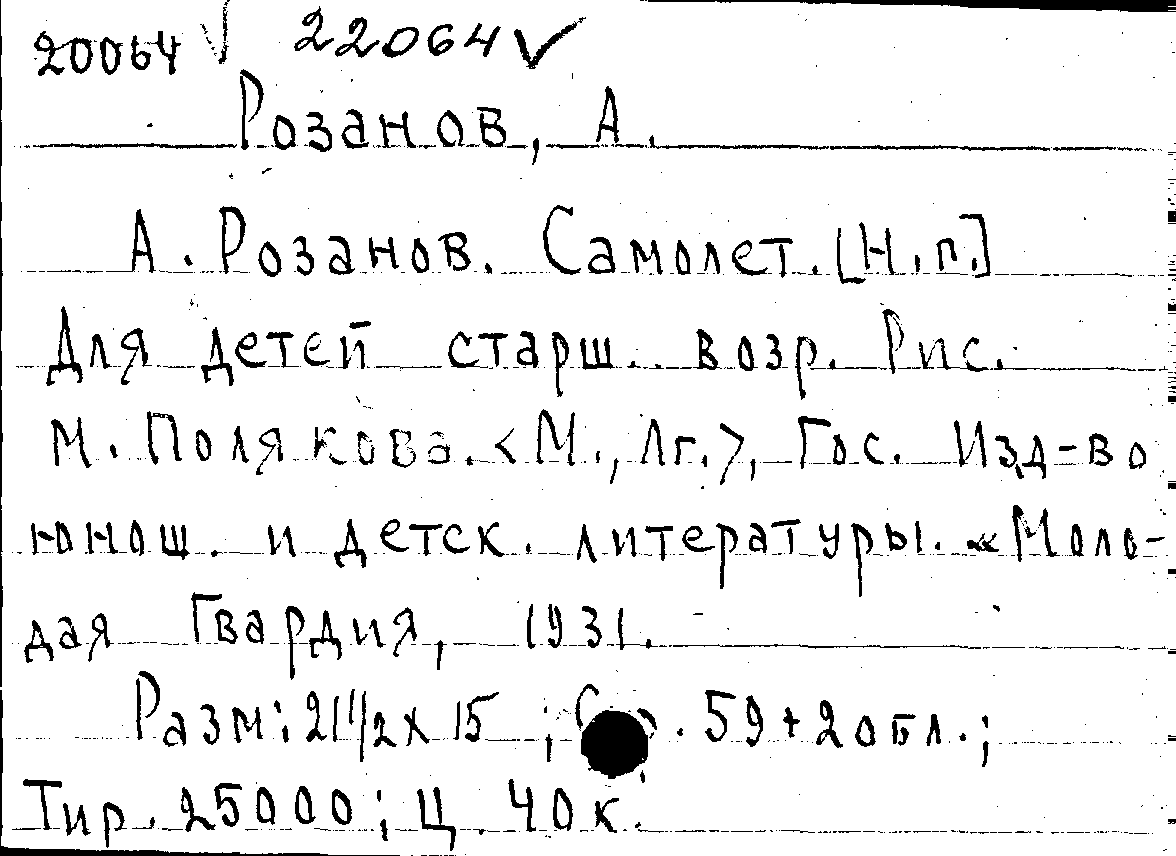 20064 √ 22064 √
Розанов, А.
А. Розанов. Самолет. [Н.п.]
Для детей старш. возр. Рис.
М. Полякова. <М., Лг.>, Гос. Изд-во
юнош. и детск. литературы. «Моло-
дая Гвардия, 1931.
Разм: 21 1/2 х 15 ; . 59 + 2 обл.;
Тир. 25000; Ц. 40 к.